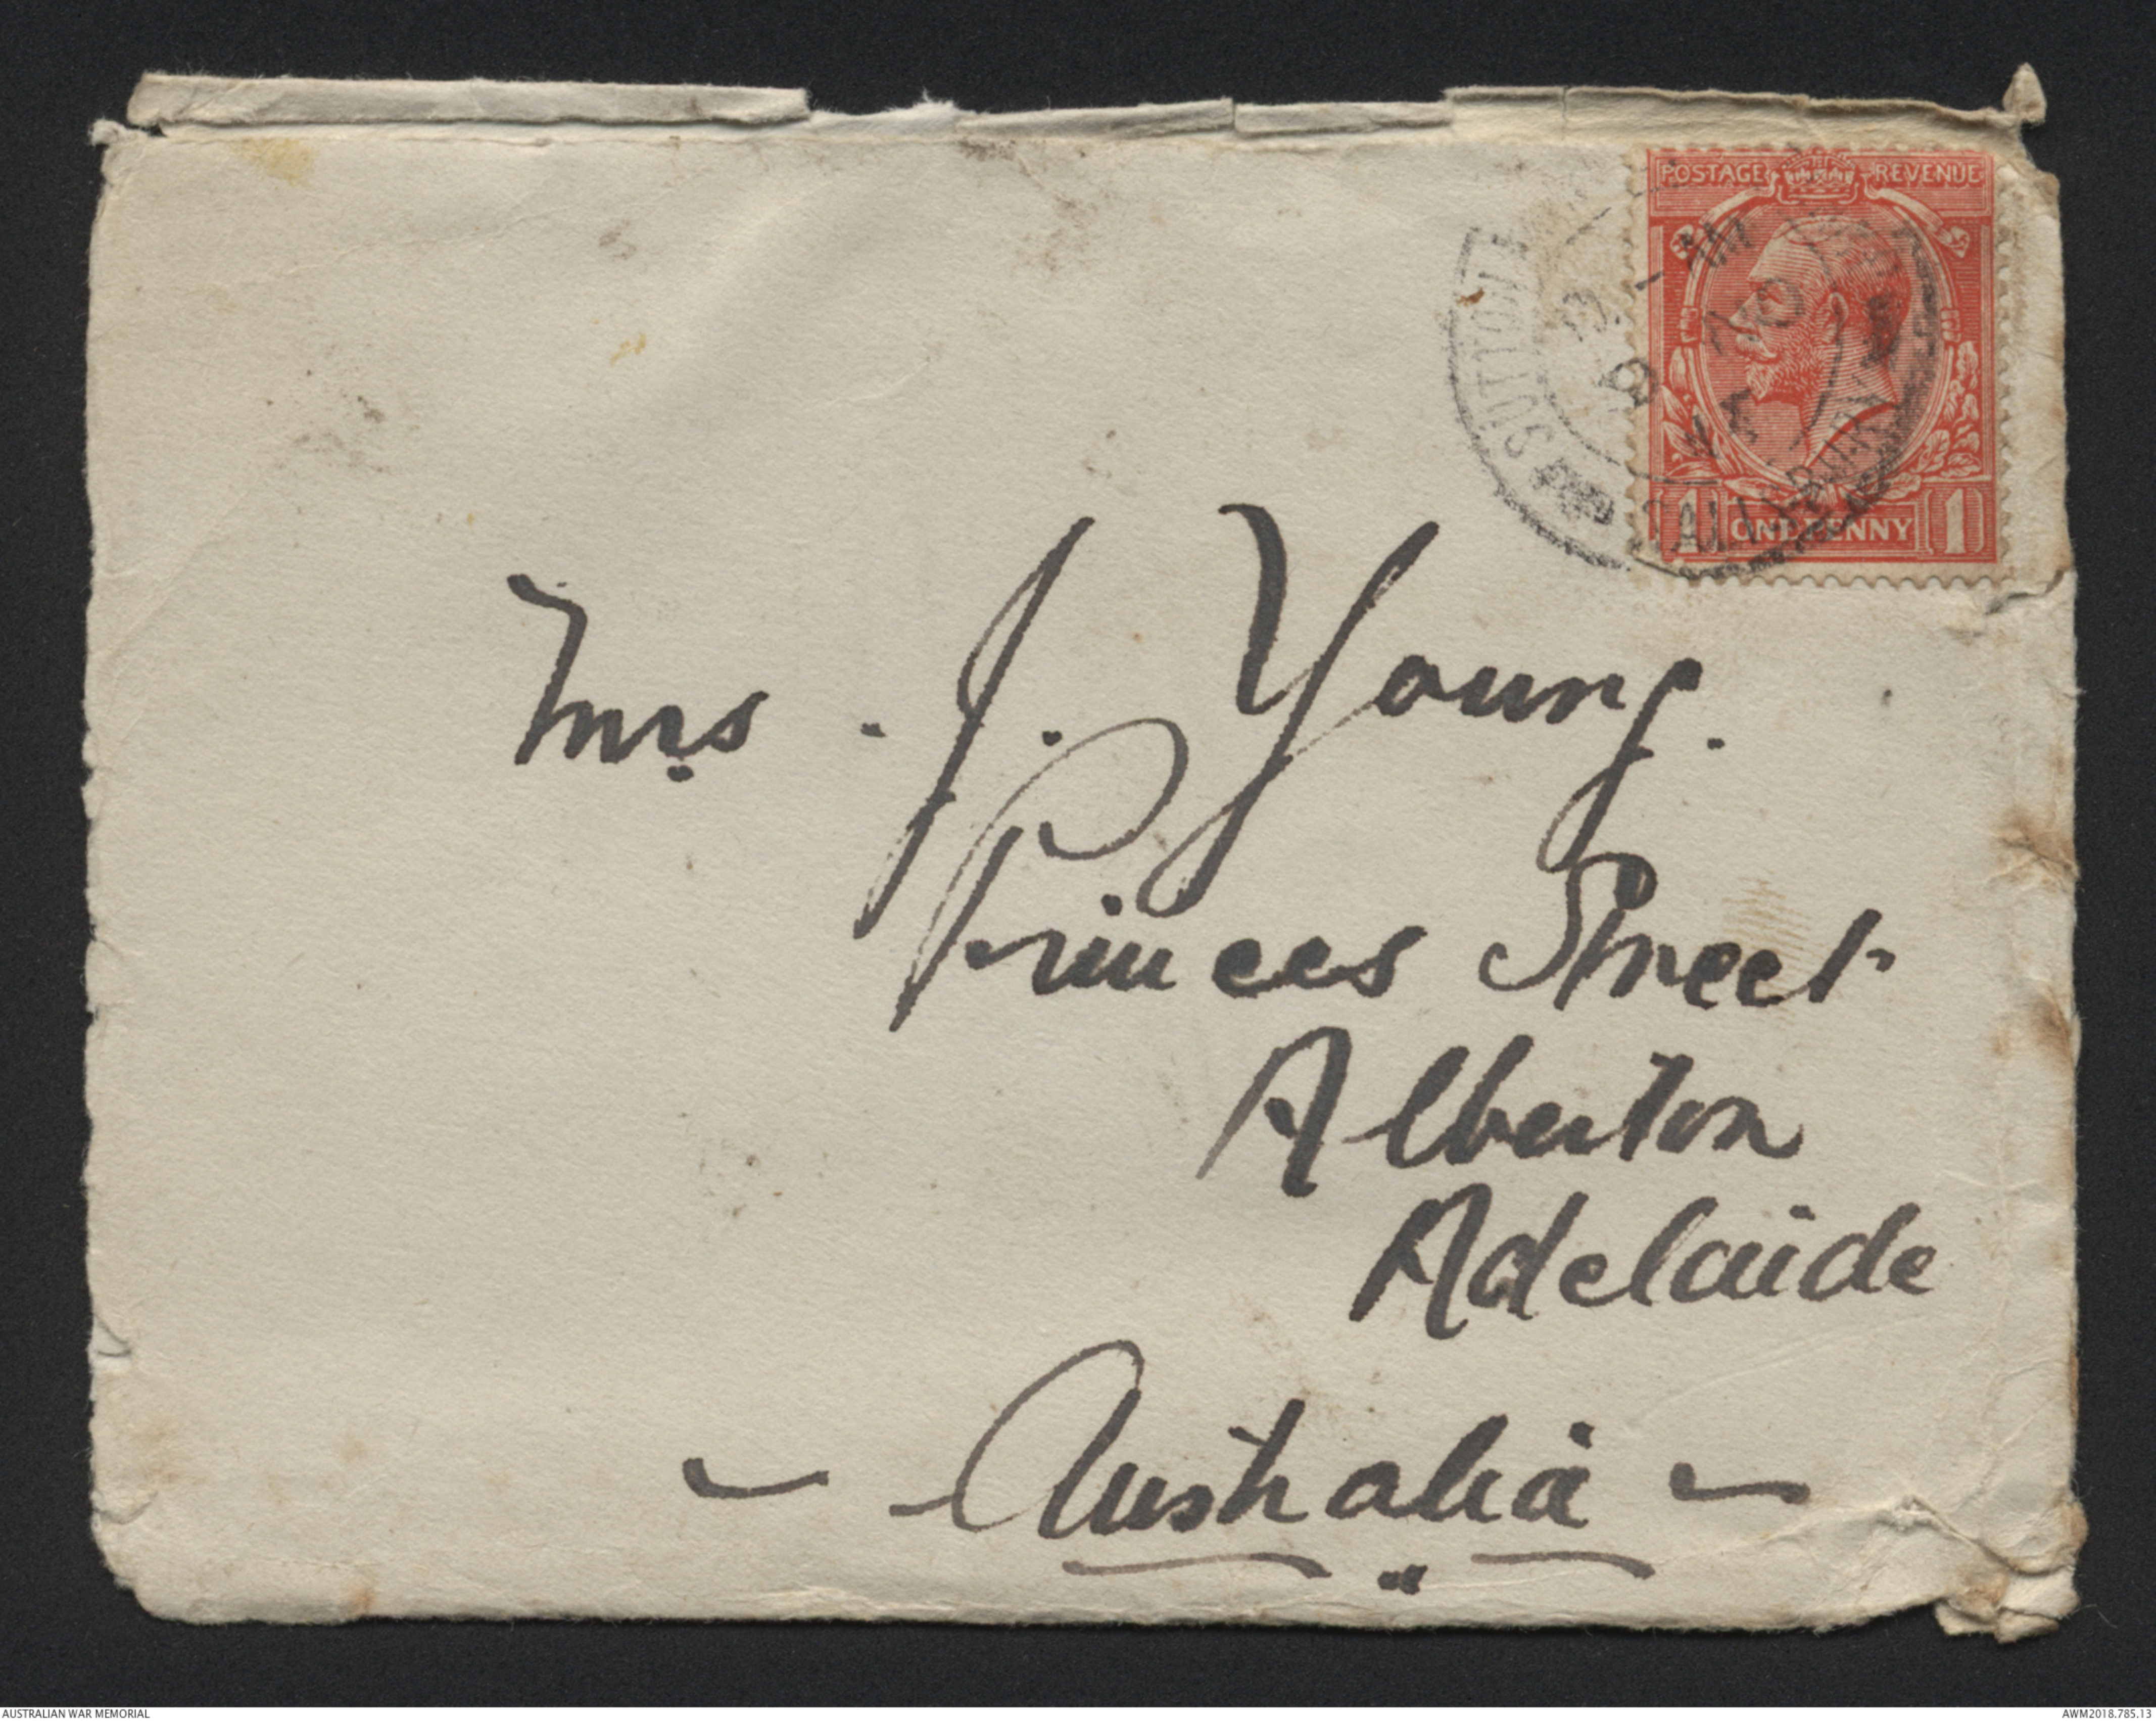 POSTAGE REVENUE
SUTTON
AM
NO
ONE PENNY
1 1
Mrs. J. Young.
Princes Street
Alberton
Adelaide
- Australia -
AUSTRALIAN WAR MEMORIAL
AWM2018.785.13